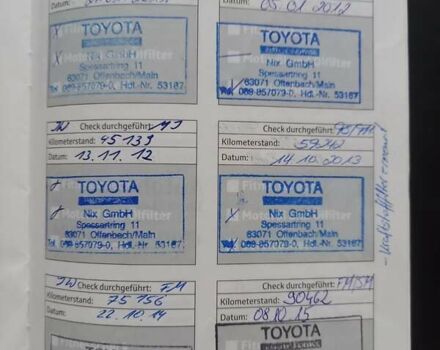 Datum:
Datum: 05.01.2012
TOYOTA
Nix GmbH
Spessartring 11
63071 Offenbach/Main
Tel. 069-857079-0, Hdl.-Nr. 53187
TOYOTA
Nix GmbH
Spessartring 11
63071 Offenbach/Main
Tel. 069-857079-0, Hdl.-Nr. 53187
Check durchgeführt:
Kilometerstand: 45139
Datum: 13.11.12
TOYOTA
Nix GmbH
Spessartring 11
63071 Offenbach/Main
Tel. 069-857079-0, Hdl.-Nr. 53187
Check durchgeführt:
Kilometerstand:
Datum: 14.10.2013
TOYOTA
Nix GmbH
Spessartring 11
63071 Offenbach/Main
Tel. 069-857079-0, Hdl.-Nr. 53187
Check durchgeführt: FM
Kilometerstand: 75156
Datum: 22.10.14
Check durchgeführt: FM/SM
Kilometerstand: 90462
Datum: 08.10.15
TOYOTA